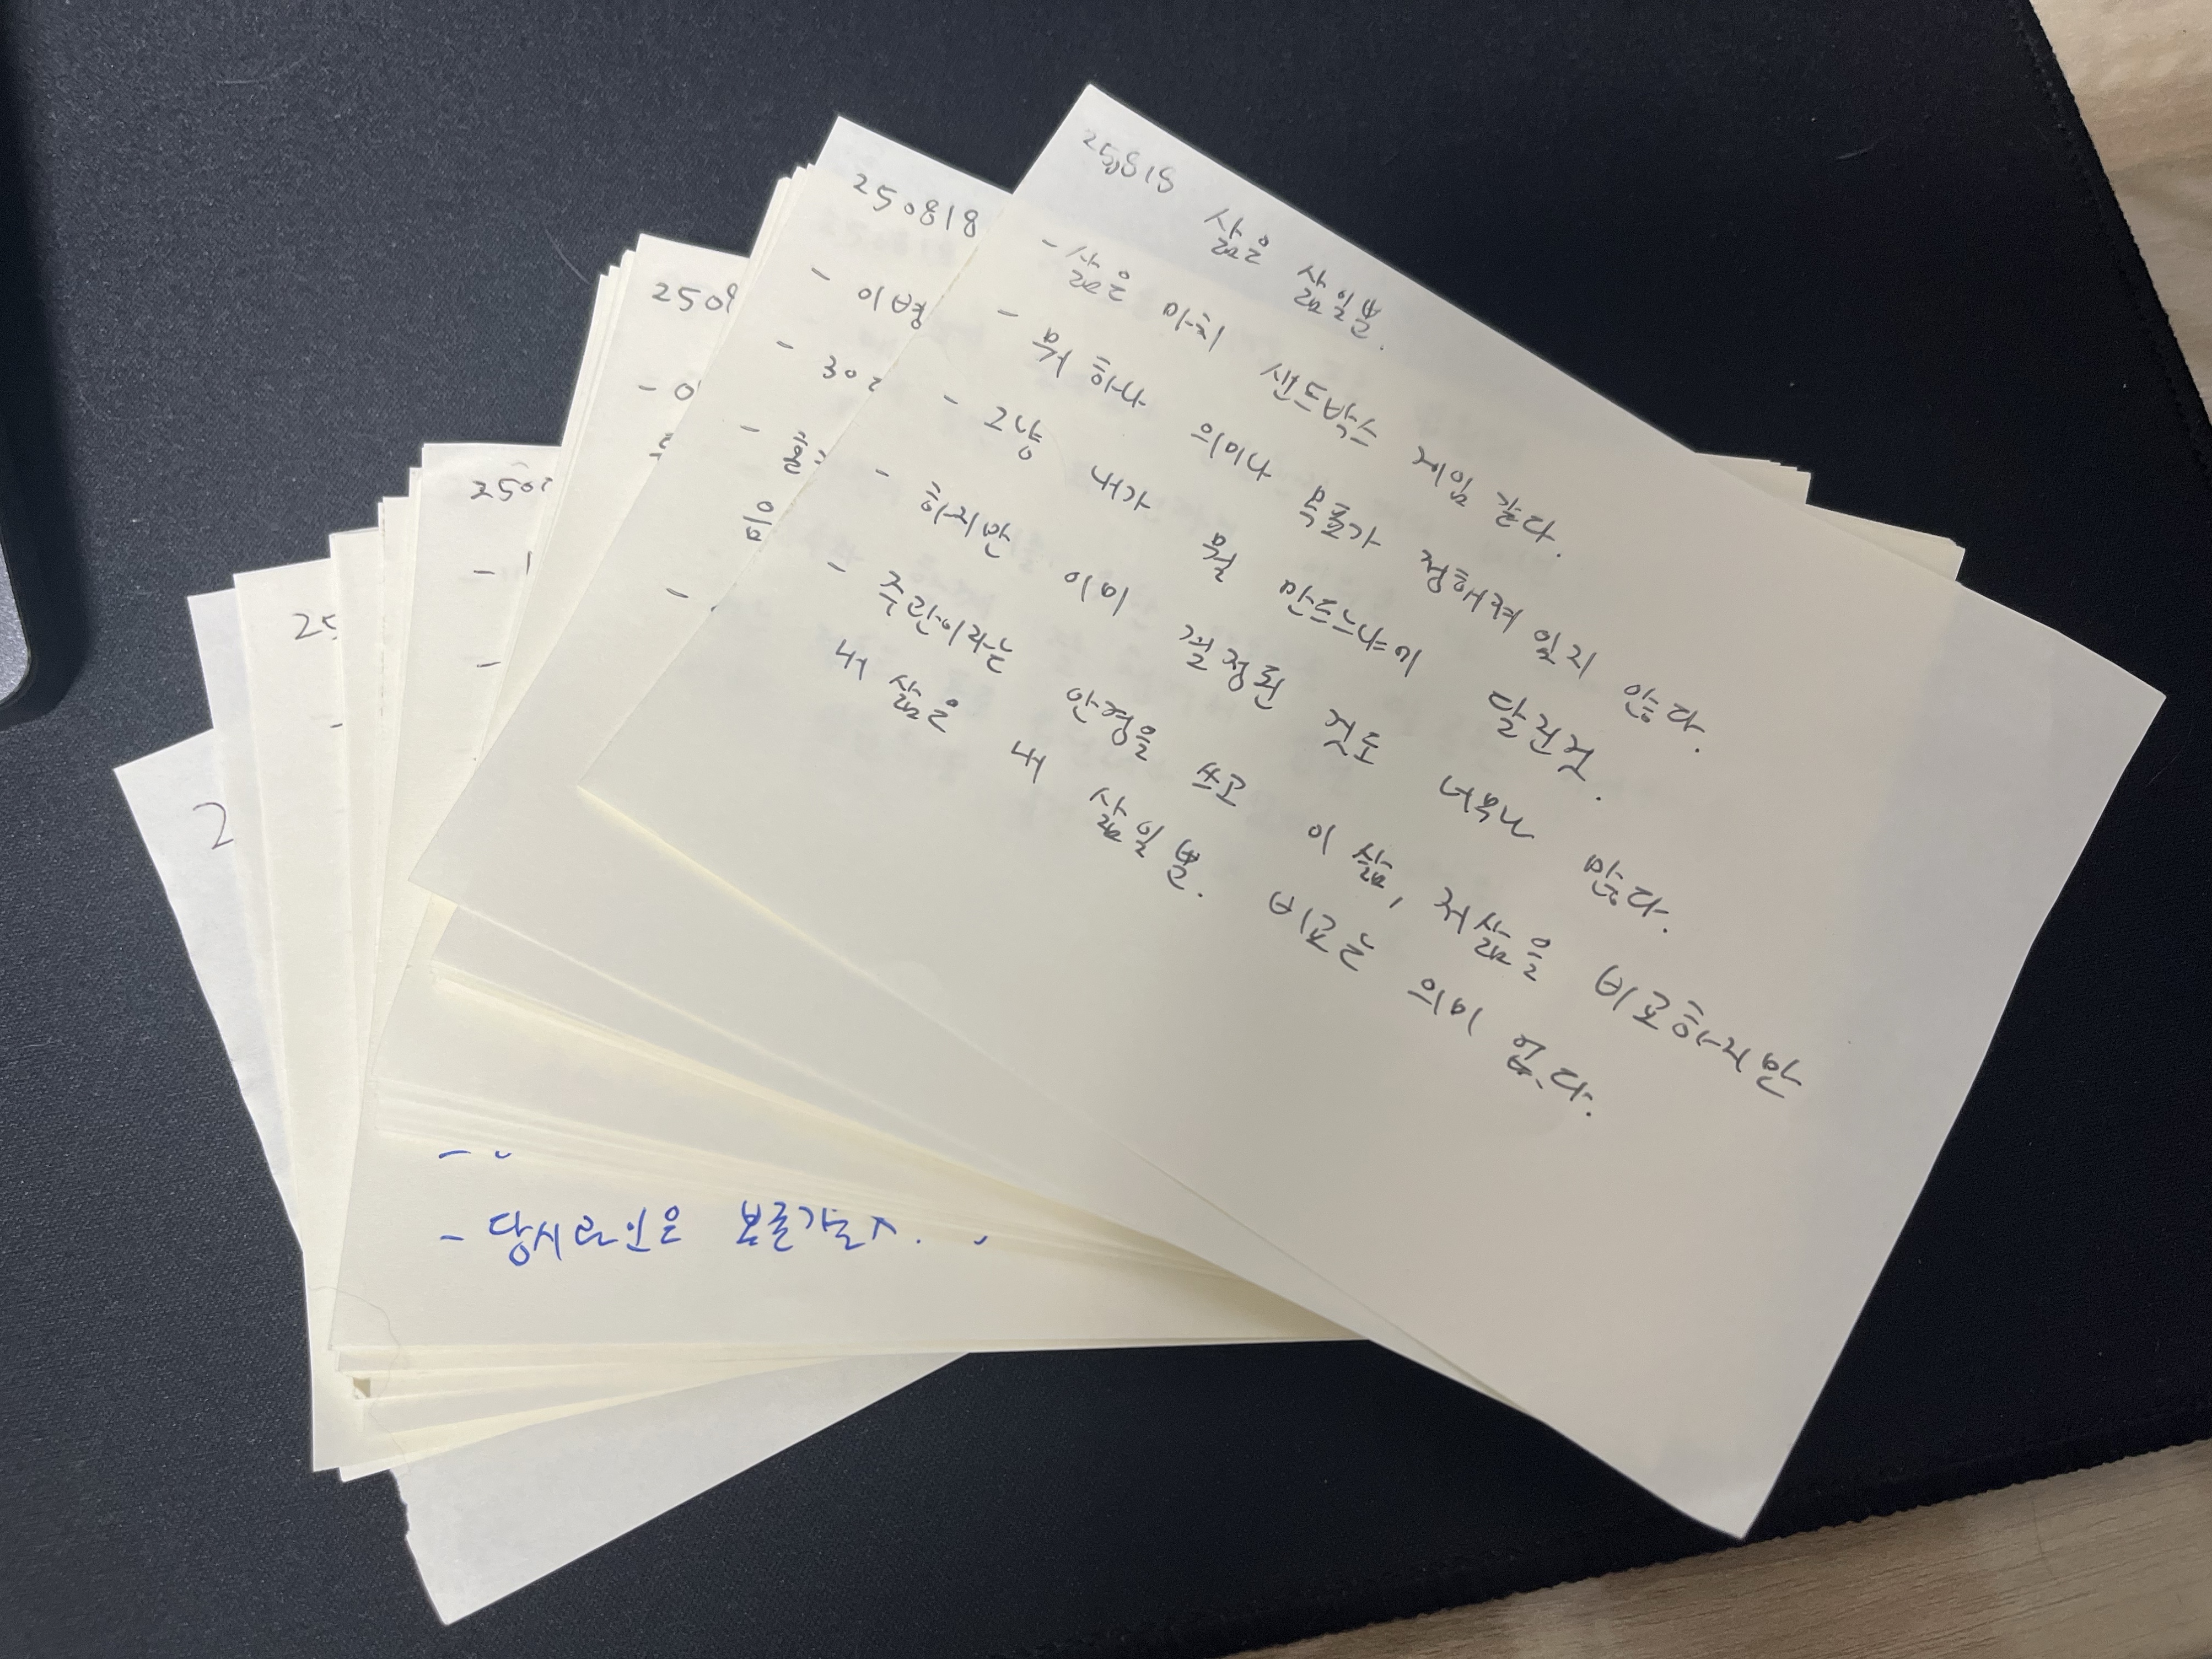 250818 삶은 삶일뿐.
- 삶은 마치 샌드박스 게임 같다.
- 뭐 하나 의미나 목표가 정해져 있지 않다.
- 그냥 내가 뭘 만드느냐에 달린 것.
- 하지만 이미 결정된 것도 너무나 많다.
- 주관이라는 안경을 쓰고 이 삶, 저 삶을 비교하지만
내 삶은 내 삶일 뿐. 비교는 의미 없다.
250818
- 이병
- 302
-
-
250
-
250
-
-
25
-
2
-
- 당시